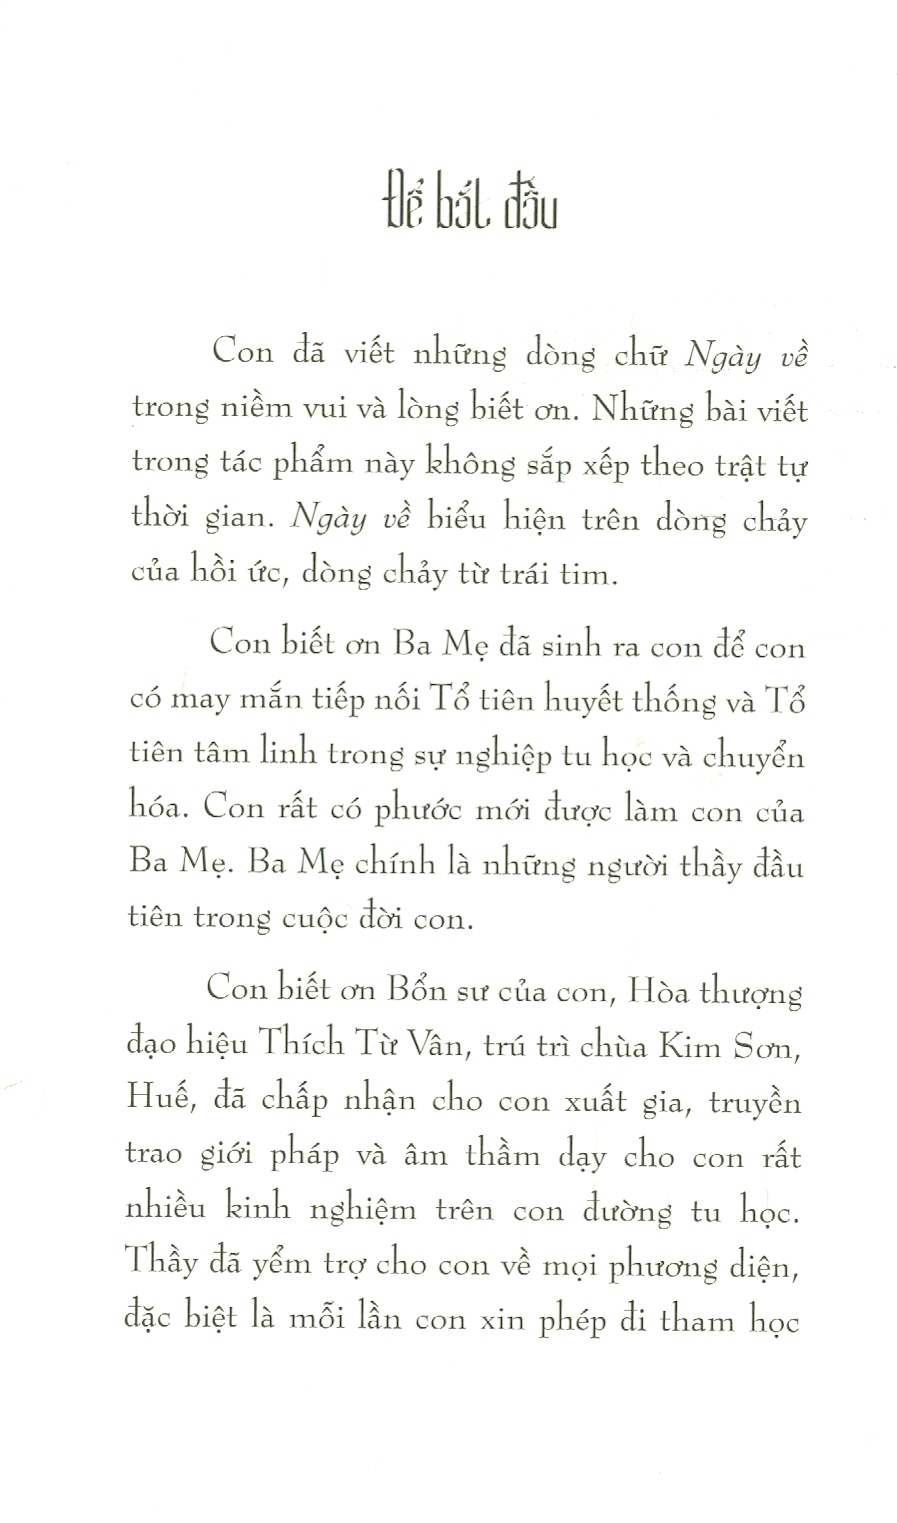 Để bắt đầu
Con đã viết những dòng chữ Ngày về
trong niềm vui và lòng biết ơn. Những bài viết
trong tác phẩm này không sắp xếp theo trật tự
thời gian. Ngày về biểu hiện trên dòng chảy
của hồi ức, dòng chảy từ trái tim.
Con biết ơn Ba Mẹ đã sinh ra con để con
có may mắn tiếp nối Tổ tiên huyết thống và Tổ
tiên tâm linh trong sự nghiệp tu học và chuyển
hóa. Con rất có phước mới được làm con của
Ba Mẹ. Ba Mẹ chính là những người thầy đầu
tiên trong cuộc đời con.
Con biết ơn Bổn sư của con, Hòa thượng
đạo hiệu Thích Từ Vân, trú trì chùa Kim Sơn,
Huế, đã chấp nhận cho con xuất gia, truyền
trao giới pháp và âm thầm dạy cho con rất
nhiều kinh nghiệm trên con đường tu học.
Thầy đã yểm trợ cho con về mọi phương diện,
đặc biệt là mỗi lần con xin phép đi tham học